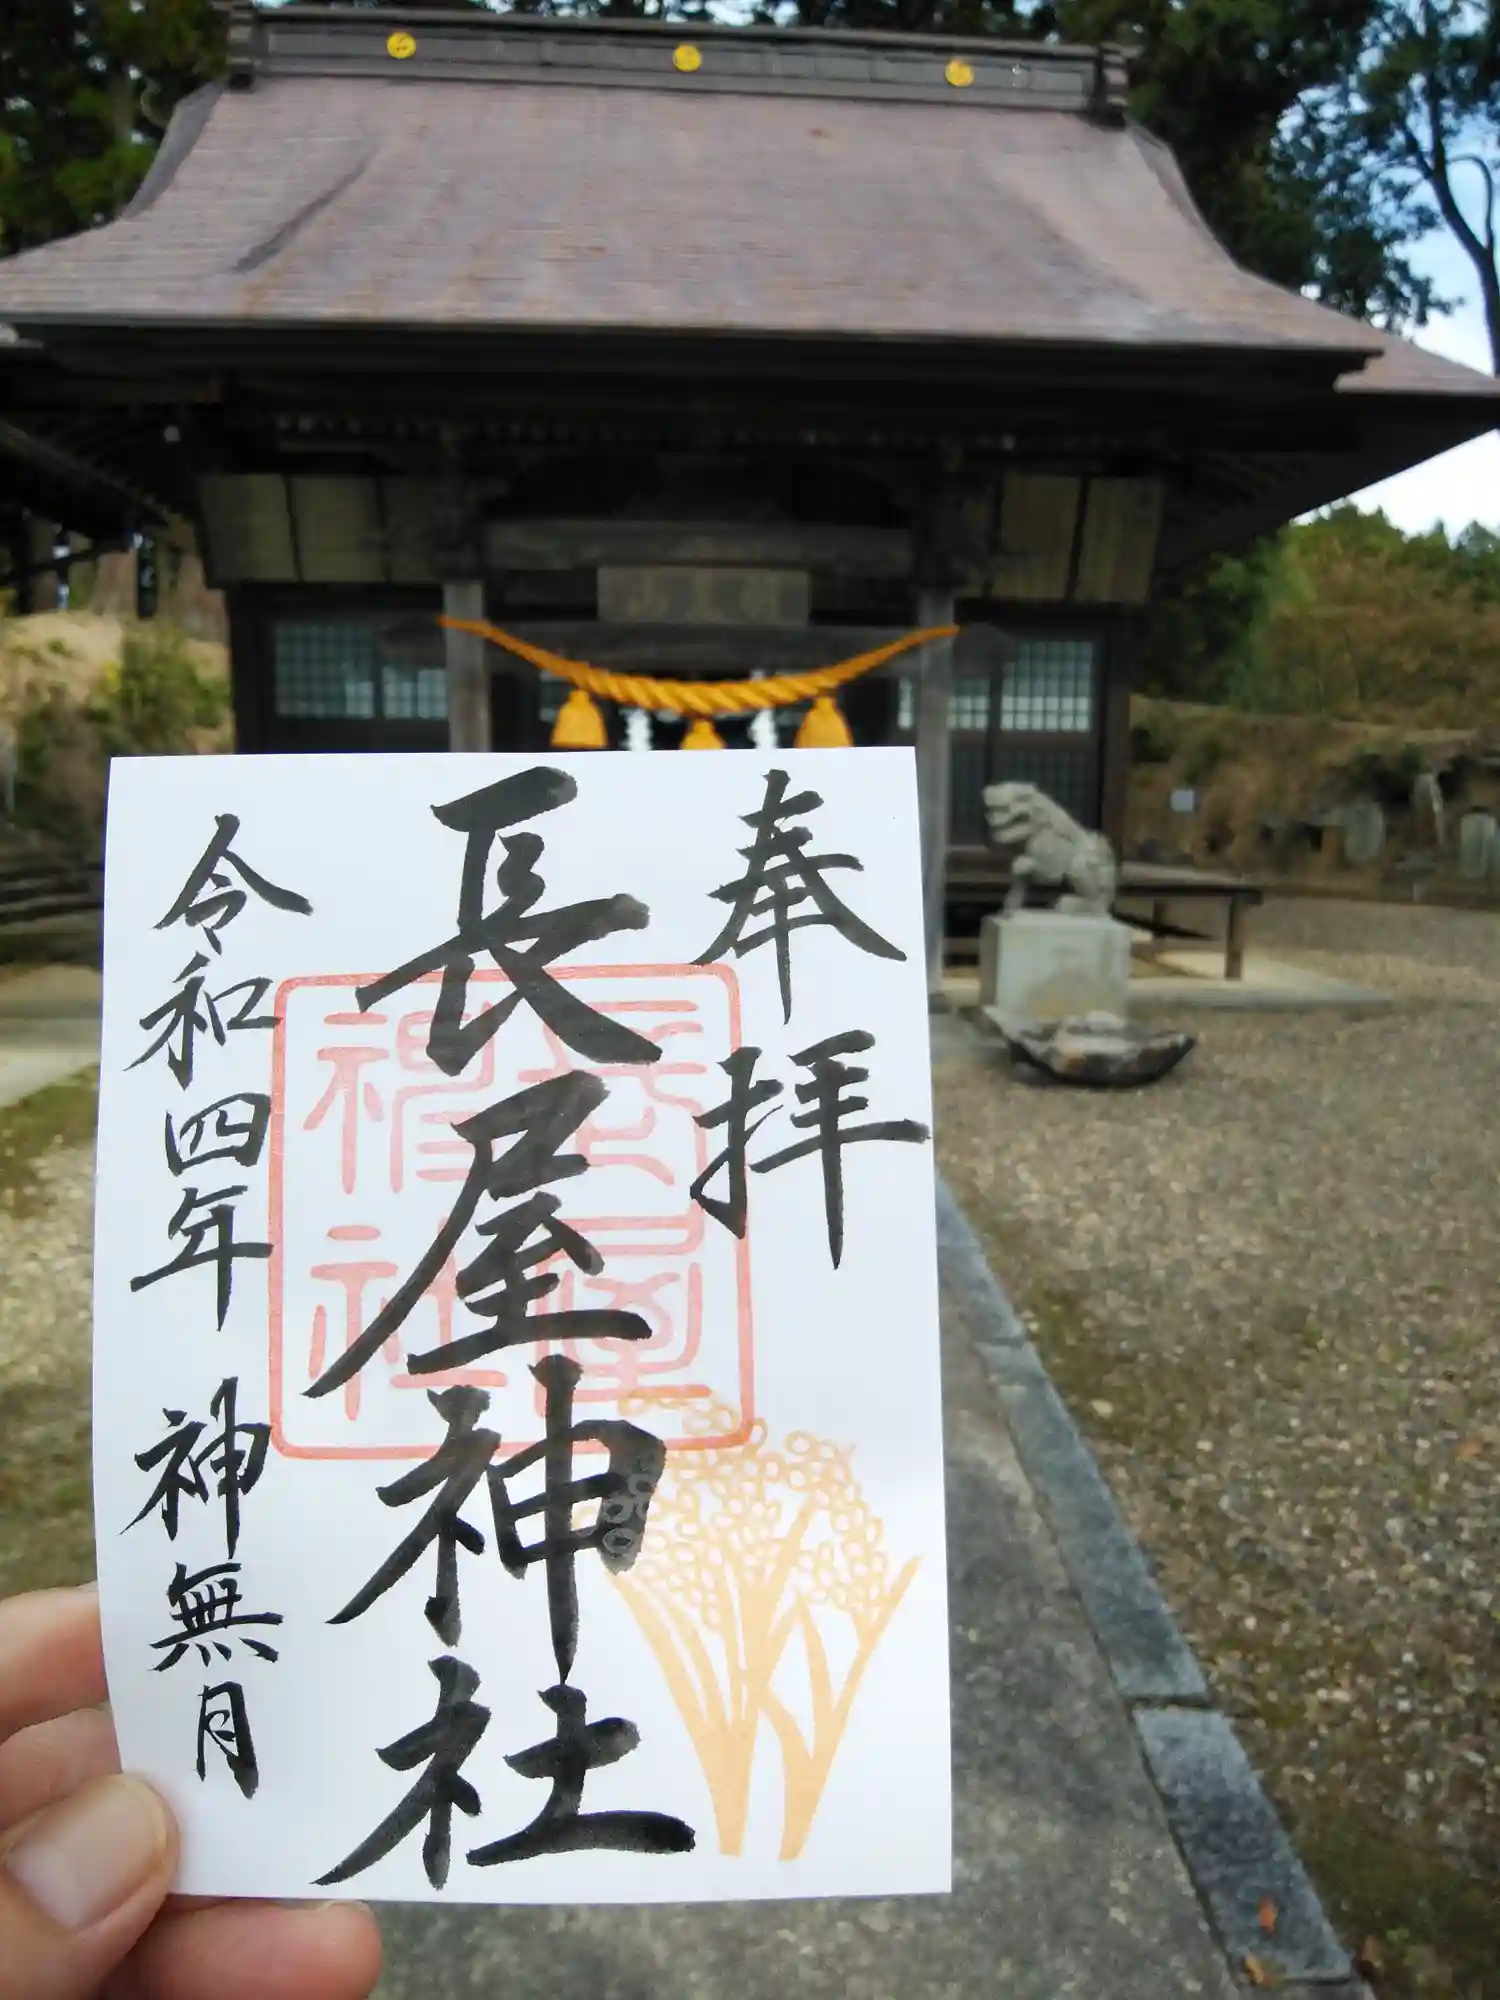 奉拝
長屋神社
令和四年 神無月
長屋
神社